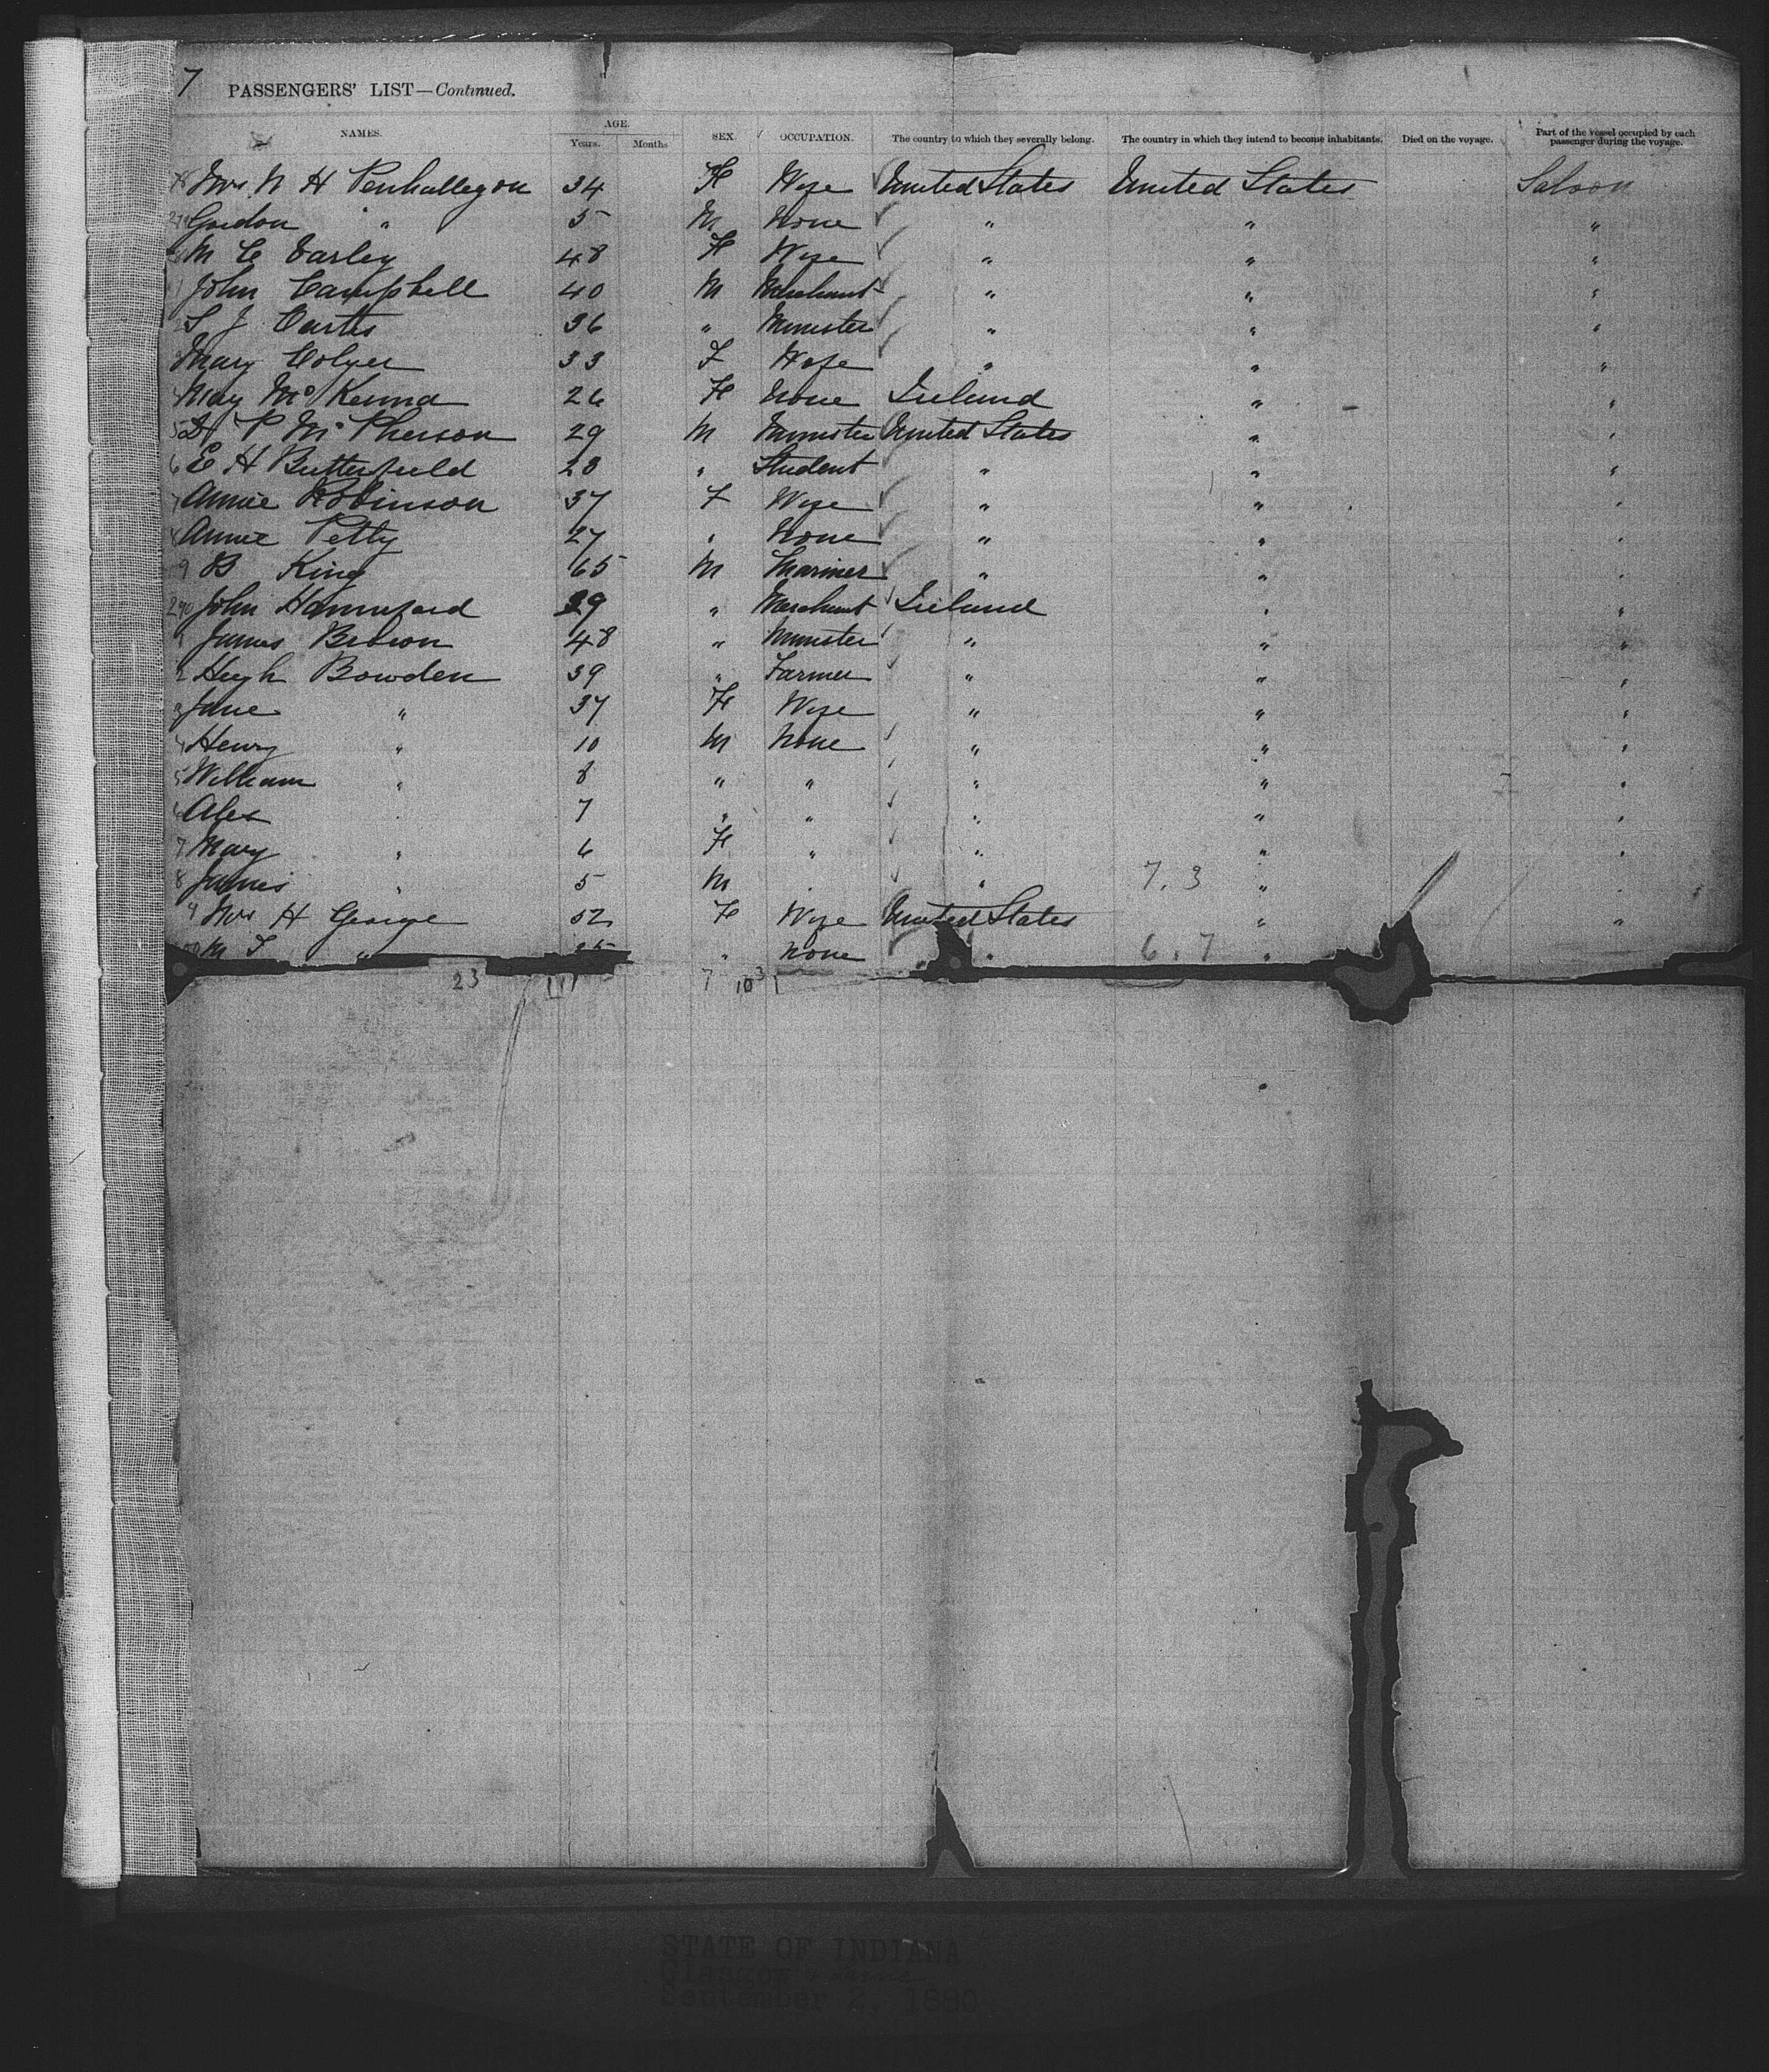 7 PASSENGERS' LIST—Continued.
NAMES. AGE. Years. Months SEX. OCCUPATION. The country to which they severally belong. The country in which they intend to become inhabitants. Died on the voyage. Part of the vessel occupied by each passenger during the voyage.
Mrs N H Penhallegon 34 F Wife United States United States Saloon
Gordon " 5 M None " " "
M C Varley 48 F Wife " " "
John Campbell 40 M Merchant " " "
S J Curtis 36 " Minister " " "
Mary Colyer 33 F Wife " " "
May McKenna 26 F None Ireland " "
5 P McPherson 29 M Minister United States " "
6 E H Butterfield 28 " Student " " "
7 Annie Robinson 37 F Wife " " "
8 Annie Petty 27 " None " " "
9 B King 65 M Mariner " " "
290 John Hannaford 39 " Merchant Ireland " "
1 James Brown 48 " Minister " " "
2 Hugh Bowden 39 " Farmer " " "
3 Jane " 37 F Wife " " "
4 Henry " 10 M None " " "
5 William " 8 " " " " "
6 Alex " 7 " " " " "
7 Mary " 6 F " " " "
8 James " 5 M " " 7.3 " "
9 Mrs H George 52 F Wife United States " "
M F " " None " 6.7 "
23 7 10 3
STATE OF INDIANA
Glasgow
September 2, 1890